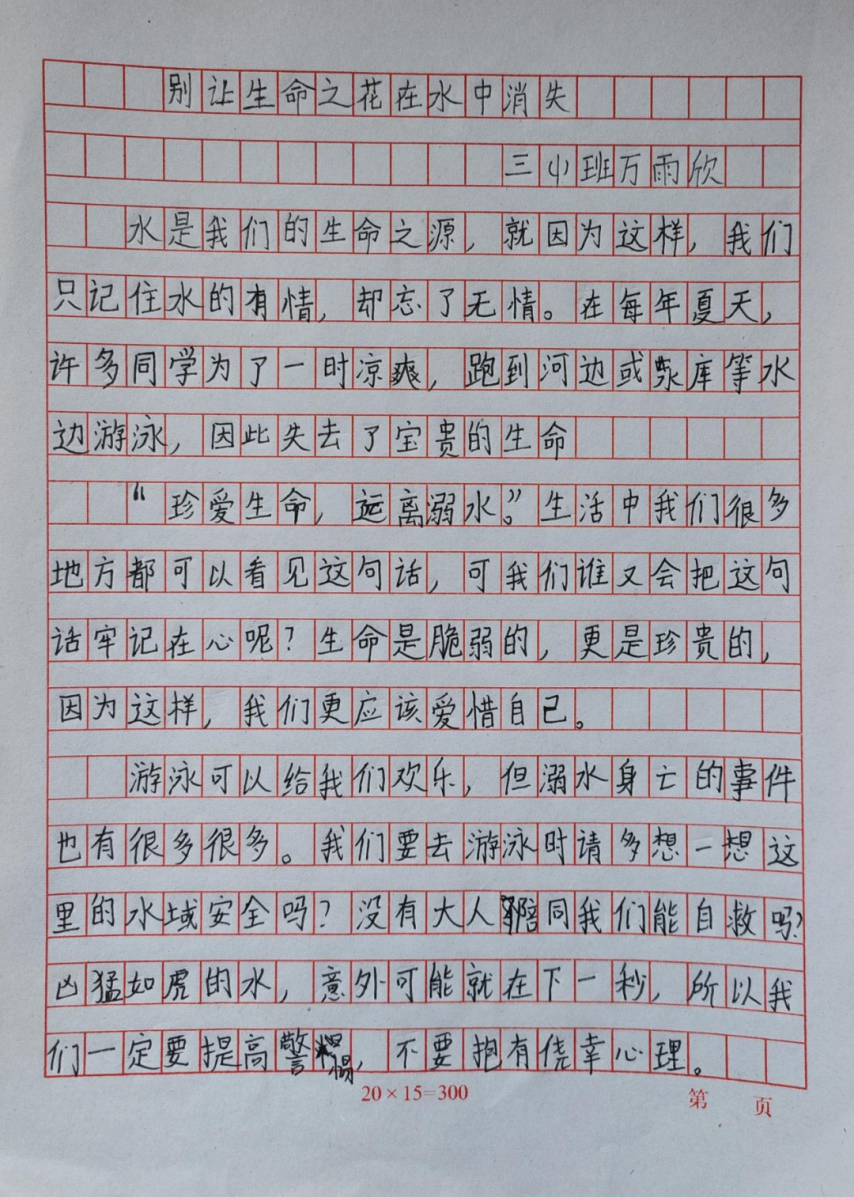 别让生命之花在水中消失
三(1)班万雨欣
水是我们的生命之源，就因为这样，我们
只记住水的有情，却忘了无情。在每年夏天，
许多同学为了一时凉爽，跑到河边或水库等水
边游泳，因此失去了宝贵的生命
“珍爱生命，远离溺水。”生活中我们很多
地方都可以看见这句话，可我们谁又会把这句
话牢记在心呢？生命是脆弱的，更是珍贵的，
因为这样，我们更应该爱惜自己。
游泳可以给我们欢乐，但溺水身亡的事件
也有很多很多。我们要去游泳时请多想一想这
里的水域安全吗？没有大人陪同我们能自救吗？
凶猛如虎的水，意外可能就在下一秒，所以我
们一定要提高警惕，不要抱有侥幸心理。
20×15=300
第 页